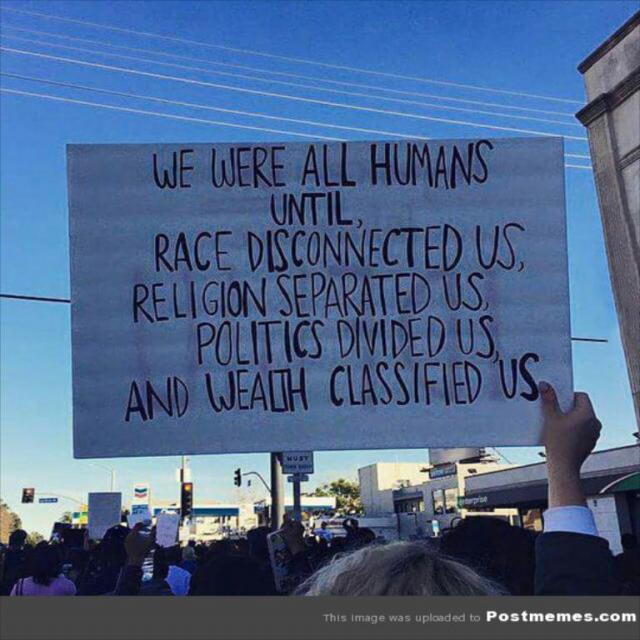 WE WERE ALL HUMANS
UNTIL,
RACE DISCONNECTED US,
RELIGION SEPARATED US,
POLITICS DIVIDED US,
AND WEALTH CLASSIFIED US
MUST
TURN RIGHT
enterprise
This image was uploaded to Postmemes.com